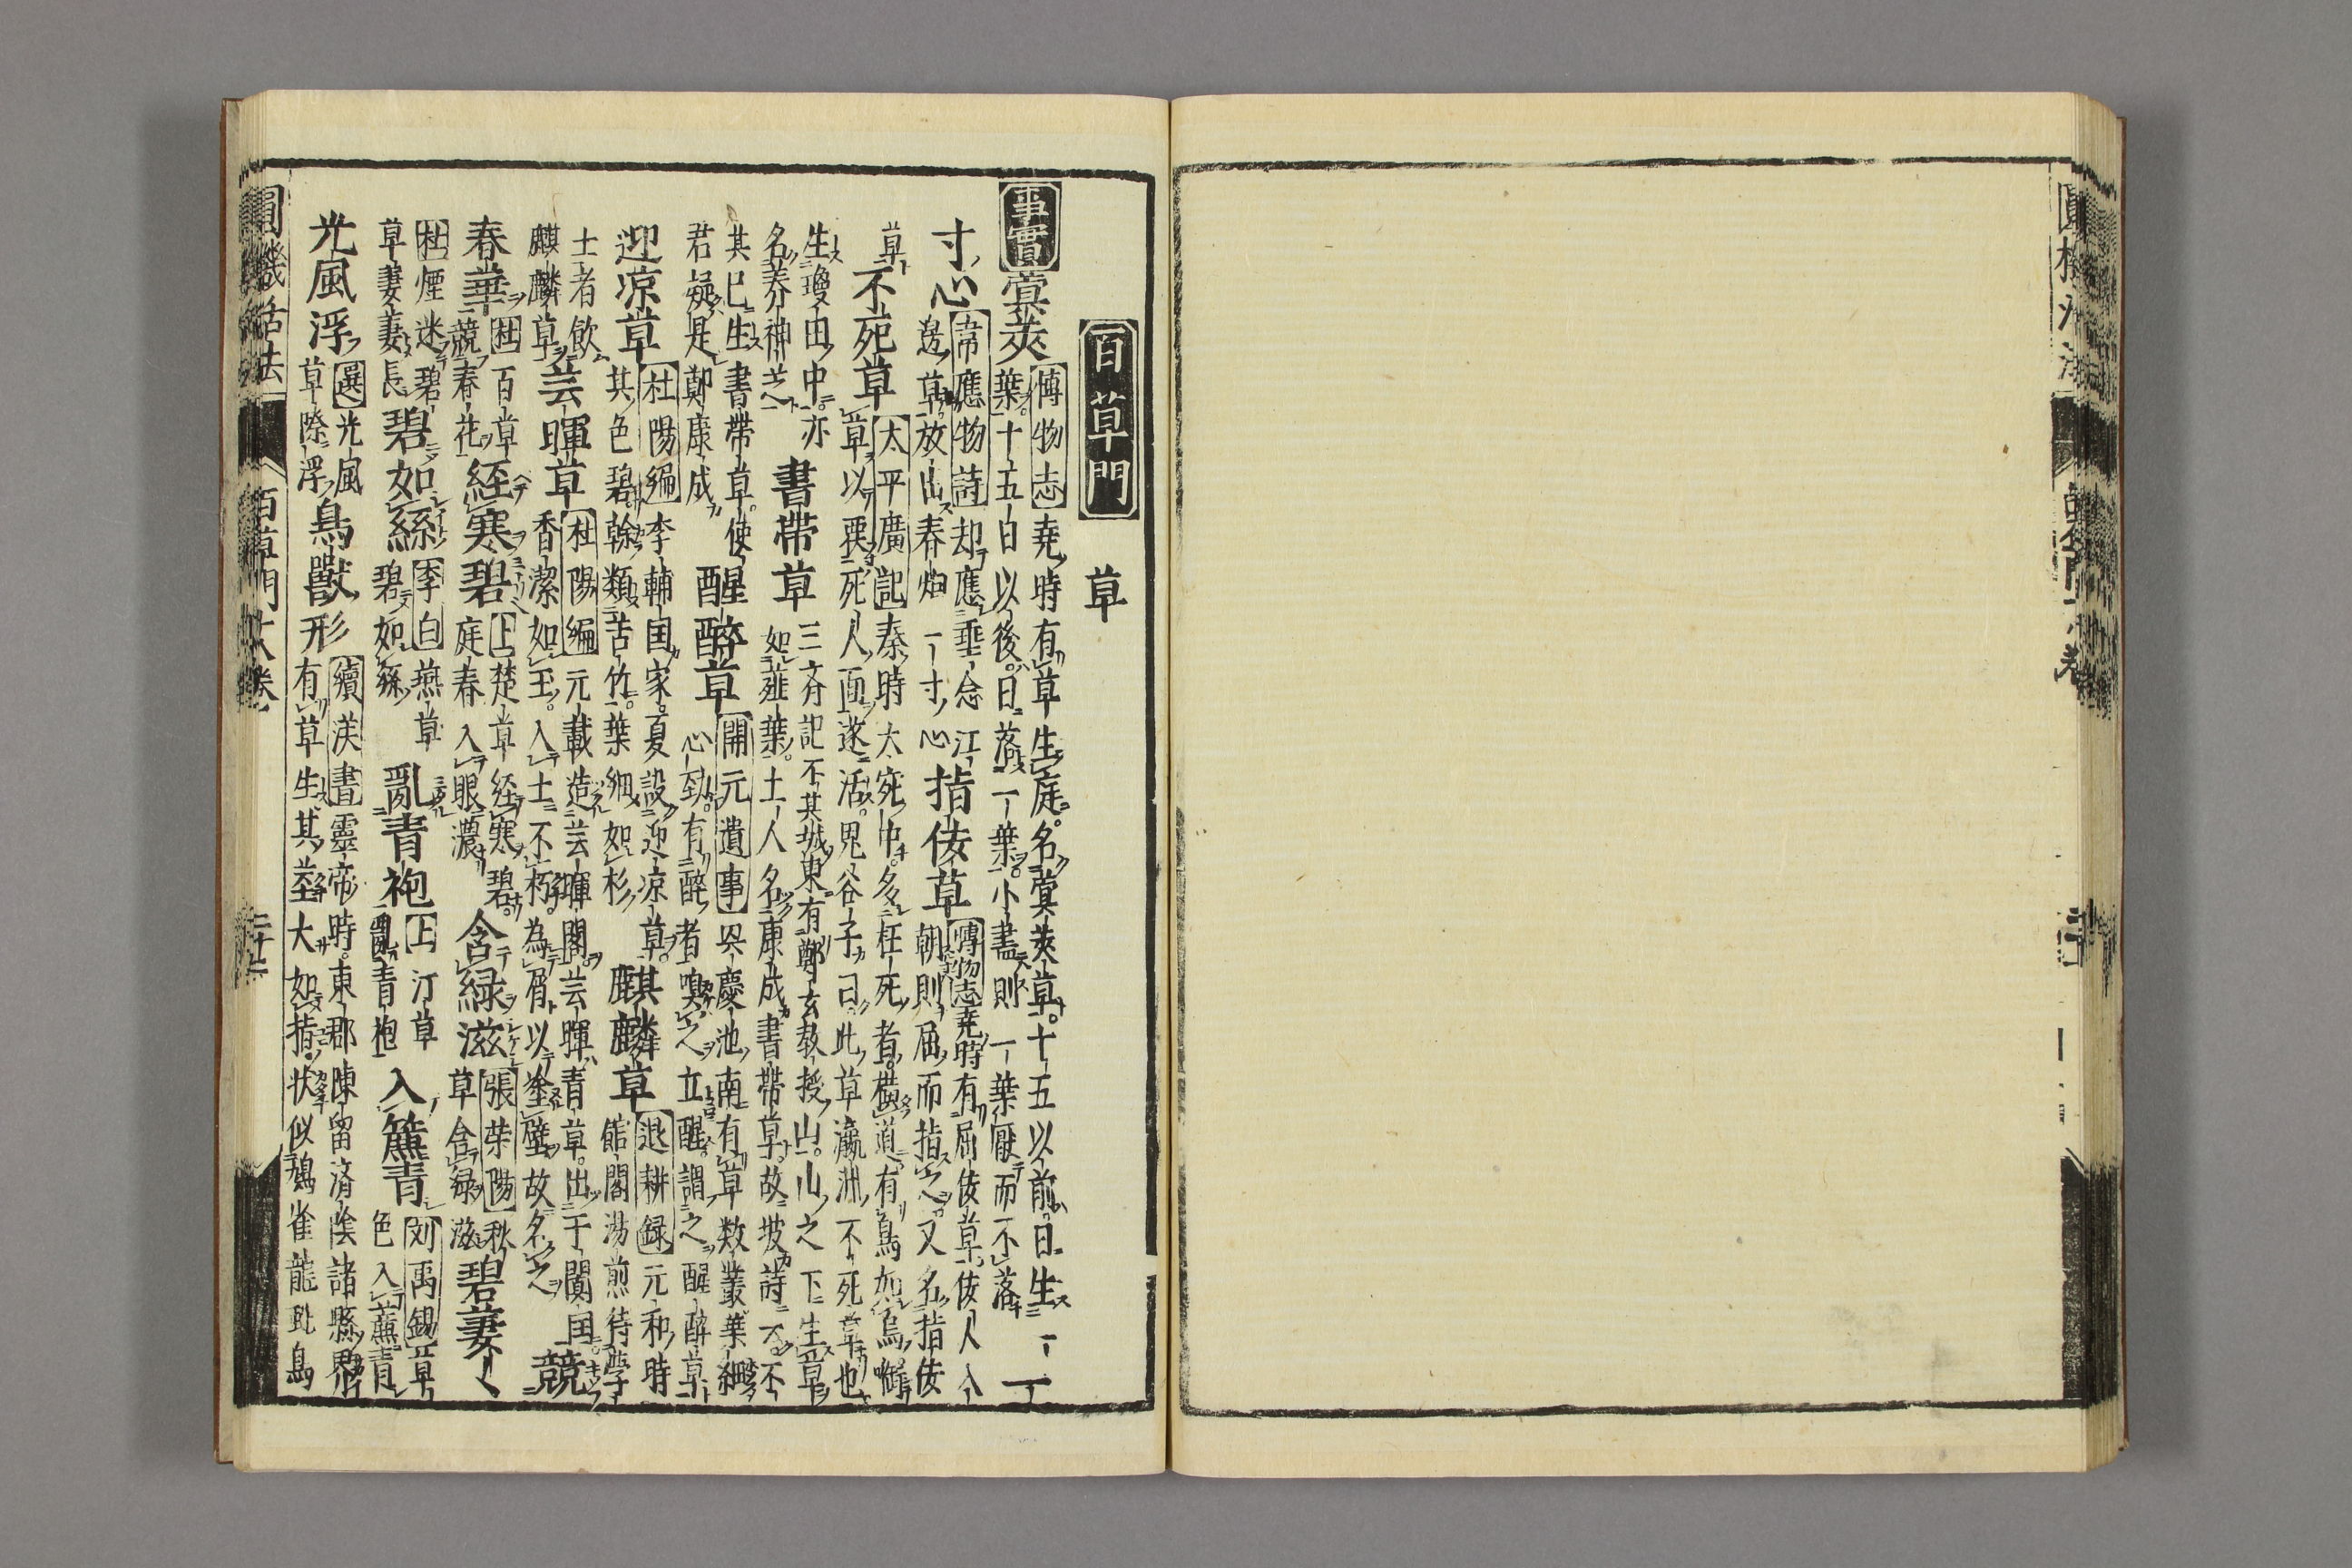 百草門　草
事實　蓂莢　博物志堯時有草生庭名蓂莢草十五以前日生一
葉十五日以後日落一葉小盡則一葉厭而不落　一
寸心　韋應物詩却應垂念江
邊草放出春烟一寸心　指佞草　博物志堯時有屈佞草佞人入
朝則屈而指之又名指佞
草　不死草　太平廣記秦時大宛中多枉死者橫道有鳥如烏啣
草以覆死人面遂活鬼谷子曰此草瀛洲不死草也
生瓊田中亦
名養神芝　書帶草　三齊記不其城東有鄭玄教授山山之下生草
如薤葉土人名康成書帶草故坡詩云不
其已生書帶草使
君疑是鄭康成　醒醉草　開元遺事興慶池南有草数叢葉細
心勁有醉者嗅之立醒謂之醒醉草
迎凉草　杜陽編李輔国家夏設迎凉草
其色碧幹類苦竹葉細如杉　麒麟草　退耕録元和時
館閣湯煎待學
士者飲
麒麟草　芸暉草　杜陽編元載造芸暉閣芸暉青草出于闐国
香潔如玉入土不朽為屑以塗壁故名之　競
春華　杜百草
競春花　経寒碧　上楚草経寒碧
庭春入眼濃　含緑滋　張荣陽秋
草含緑滋　碧萋〻
杜煙迷碧
草萋萋長　碧如絲　李白燕草
碧如絲　亂青袍　上汀草
亂青袍　入簾青　刘禹錫草
色入簾青
光風浮　選光風
草際浮　鳥獸形　續漢書靈帝時東郡陳留済陰諸縣界
有草生其莖大如指状似鳩雀龍虵鳥
圓機活法　百草門十八巻　二十二